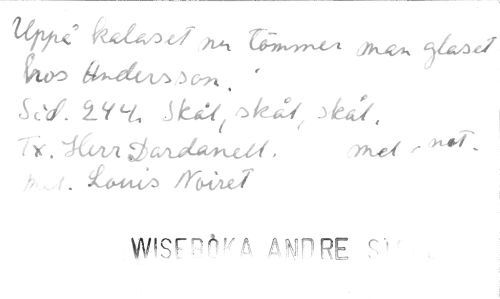 Uppå kalaset nu tömmer man glaset
hos Andersson.
Sid. 244. Skål, skål, skål.
Tx. Herr Dardanell. mel. not.
mel. Louis Noiret
WISEBÖKA ANDRE